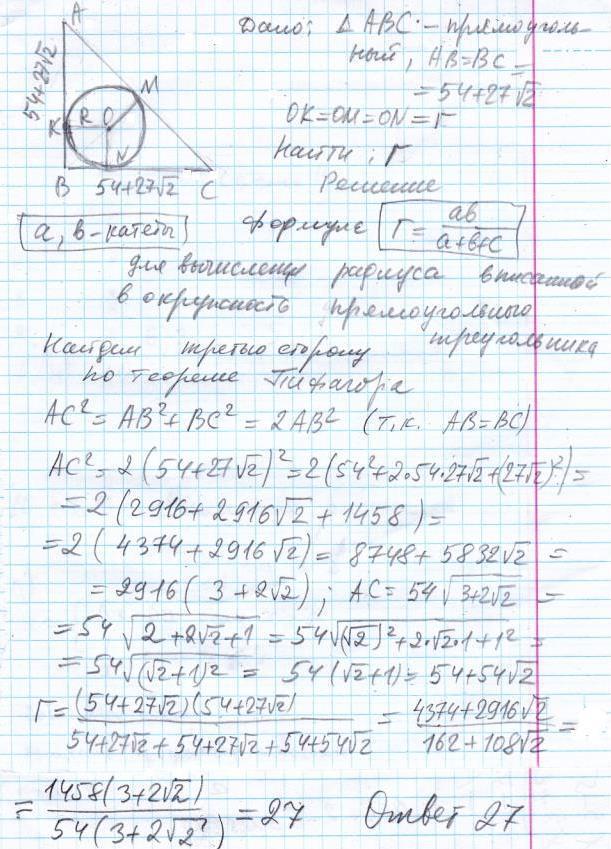 A
54+27√2
K R O M
N
B 54+27√2 C
Дано: Δ ABC - прямоуголь-
ный, AB=BC=
=54+27√2
OK=OM=ON=r
Найти: r
Решение
a, b-катеты формуле r = ab/(a+b+c)
для вычисления радиуса вписанной
в окружность прямоугольного
треугольника
Найдем третью сторону
по теореме Пифагора
AC² = AB² + BC² = 2AB² (т.к. AB=BC)
AC² = 2(54+27√2)² = 2(54²+2·54·27√2+(27√2)²) =
= 2(2916+2916√2+1458) =
= 2(4374+2916√2) = 8748+5832√2 =
= 2916(3+2√2); AC = 54√(3+2√2) =
= 54√(2+2√2+1) = 54√((√2)²+2·√2·1+1²) =
= 54√((√2+1)²) = 54(√2+1) = 54+54√2
r = (54+27√2)(54+27√2)/(54+27√2+54+27√2+54+54√2) = (4374+2916√2)/(162+108√2) =
= 1458(3+2√2)/(54(3+2√2)) = 27 Ответ 27